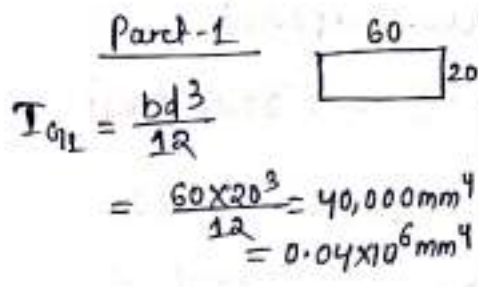 Part-1
60
20
I_G1 = bd³/12
= 60×20³/12 = 40,000mm⁴
= 0.04×10⁶mm⁴